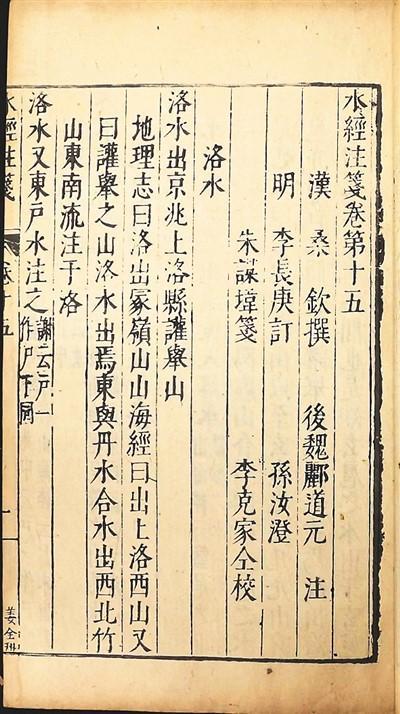 水經注箋卷第十五
漢 桑 欽撰 後魏酈道元 注
明 李長庚訂 孫汝澄
朱謀㙔箋 李克家仝校
洛水
洛水出京兆上洛縣讙舉山
地理志曰洛出冢嶺山山海經曰出上洛西山又
曰讙舉之山洛水出焉東與丹水合水出西北竹
山東南流注于洛
洛水又東戶水注之
謝云戶一
作尸下同
水經注箋 卷十五 一
姜全